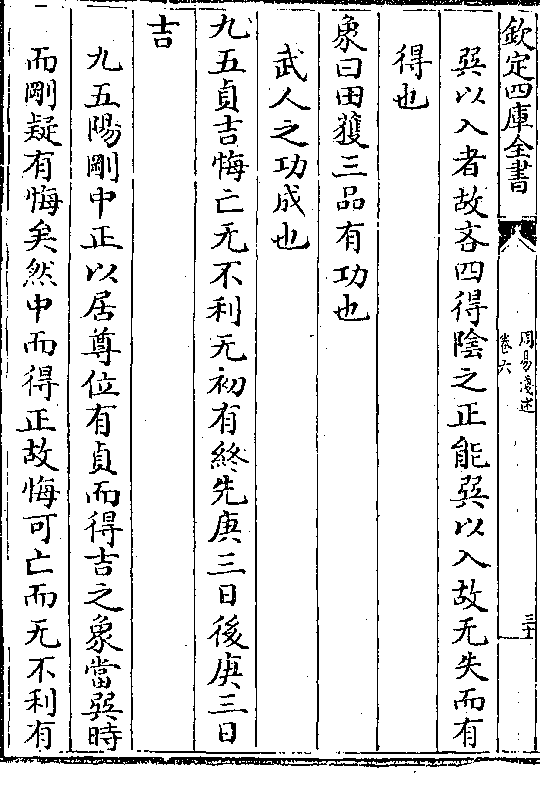 欽定四庫全書
周易淺述
卷六
三十
巽以入者故吝四得陰之正能巽以入故无失而有
得也
象曰田獲三品有功也
武人之功成也
九五貞吉悔亡无不利无初有終先庚三日後庚三日
吉
九五陽剛中正以居尊位有貞而得吉之象當巽時
而剛疑有悔矣然中而得正故悔可亡而无不利有